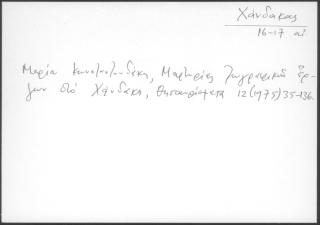 Χάνδακας
16-17 αἰ
Μαρία Κωνσταντουδάκη, Μαρτυρίες ζωγραφικῶν ἔρ-
γων στό Χάνδακα, Θησαυρίσματα 12 (1975) 35-136.